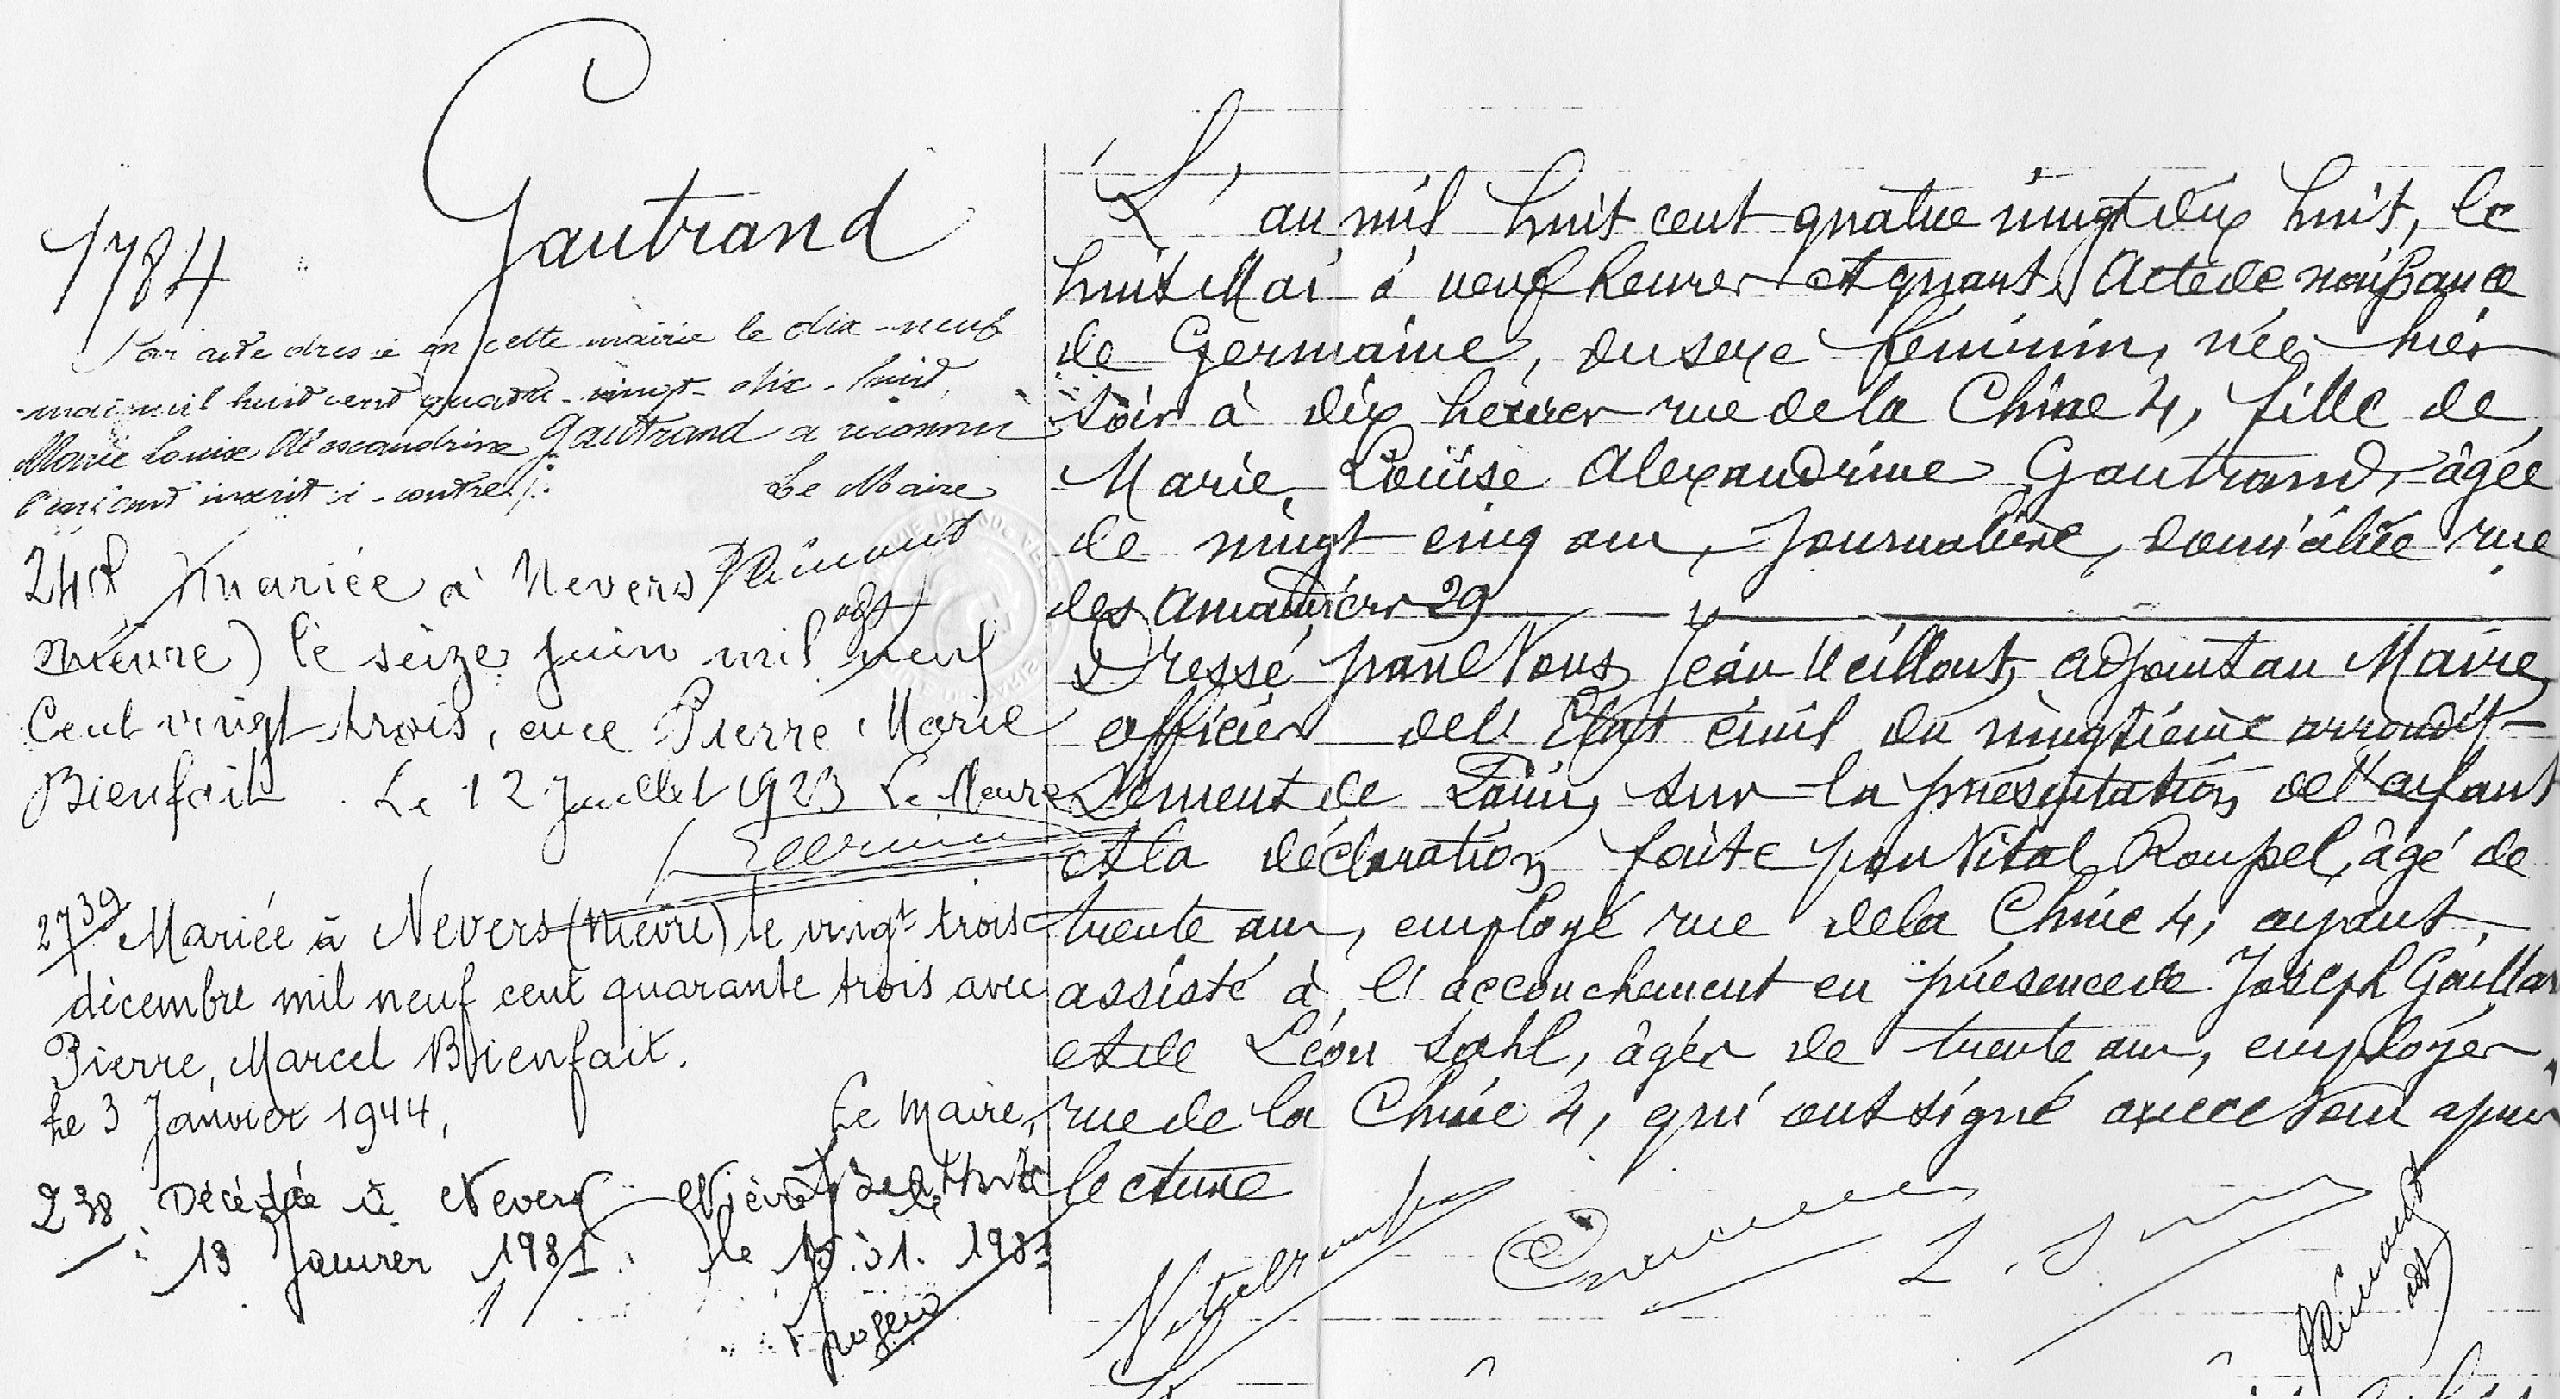 1784
Gautrand
Par acte dressé en cette mairie le dix-neuf
mai mil huit cent quatre-vingt-dix-huit,
Marie Louise Alexandrine Gautrand a reconnu
l'enfant inscrit ci-contre.
Le Maire
mariée à Nevers
Nièvre) le seize juin mil neuf
Cent vingt trois, avec Pierre Marie
Bienfait. Le 12 Juillet 1923 Le Maire
2739 Mariée à Nevers (Nièvre) le vingt trois
décembre mil neuf cent quarante trois avec
Pierre, Marcel Bienfait.
Le 3 Janvier 1944,
Le Maire,
238 Décédée à Nevers Nièvre le
13 Janvier 1981. le
L'an mil huit cent quatre vingt dix huit, le
huit Mai à neuf heures et quart. Acte de naissance
de Germaine, du sexe féminin, née hier
soir à dix heures rue de la Chine 4, fille de
Marie Louise Alexandrine Gautrand, âgée
de vingt cinq ans, Journalière, domiciliée rue
des Amandiers 29
Dressé par Nous, Jean Veillout, adjoint au Maire,
officier de l'Etat civil du vingtième arrondis-
sement de Paris, sur la présentation de l'enfant
et la déclaration faite par Vital Roussel, âgé de
trente ans, employé rue de la Chine 4, ayant
assisté à l'accouchement en présence de Joseph Gaillar
et de Léon Sahl, âgés de trente ans, employés,
rue de la Chine 4, qui ont signé avec Nous après
lecture